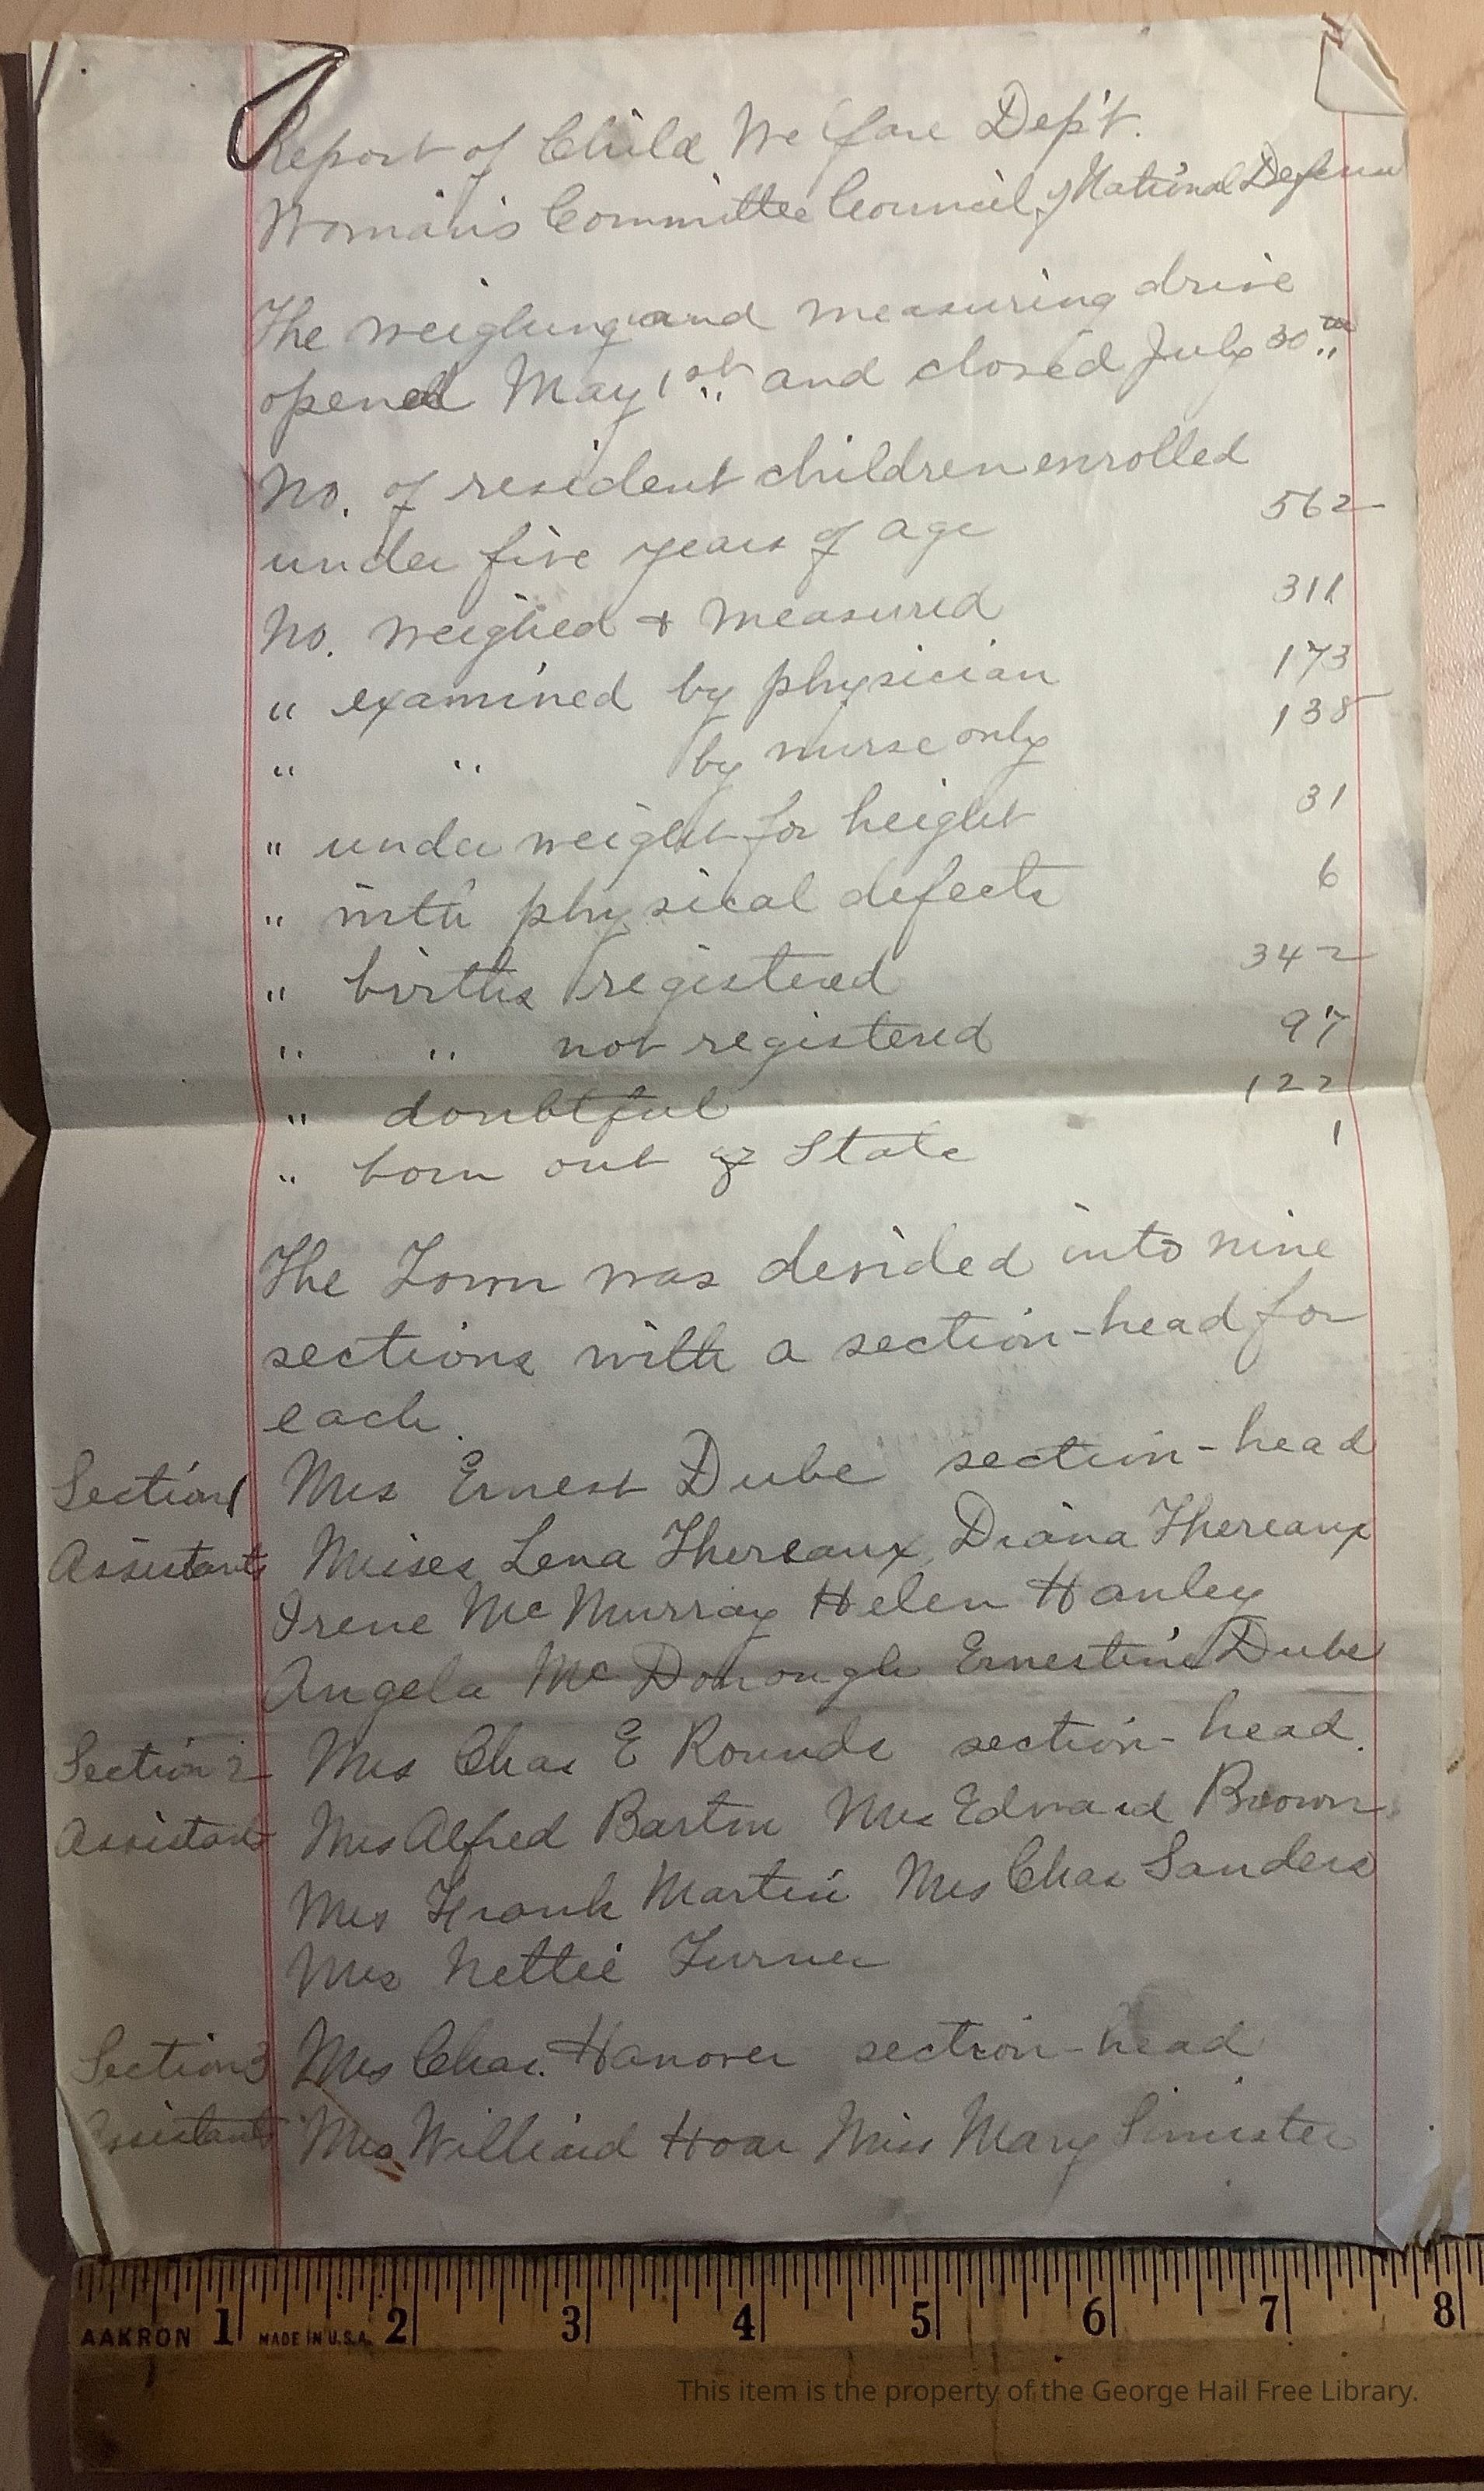 Report of Child Welfare Dep't.
Woman's Committee Council of National Defense
The weighing and measuring drive
opened May 1st and closed July 30th
No. of resident children enrolled
under five years of age 562
No. weighed + measured 311
" examined by physician 173
" " by nurse only 138
" under weight for height 31
" with physical defects 6
" births registered 342
" " not registered 97
" doubtful 122
" born out of State 1
The Town was devided into nine
sections with a section-head for
each.
Section 1 Mrs Ernest Dube section-head
Assistants Misses Lena Thereaux, Diana Thereaux
Irene McMurray Helen Hanley
Angela McDonough Ernestine Dube
Section 2 Mrs Chas E Rounds section-head.
Assistants Mrs Alfred Barton Mrs Edward Brown,
Mrs Frank Martin Mrs Chas Sanders
Mrs Nettie Turner
Section 3 Mrs Chas. Hanover section-head
Assistants Mrs Williard Hoar Miss Mary Simister
AAKRON 1 MADE IN U.S.A. 2 3 4 5 6 7 8
This item is the property of the George Hail Free Library.